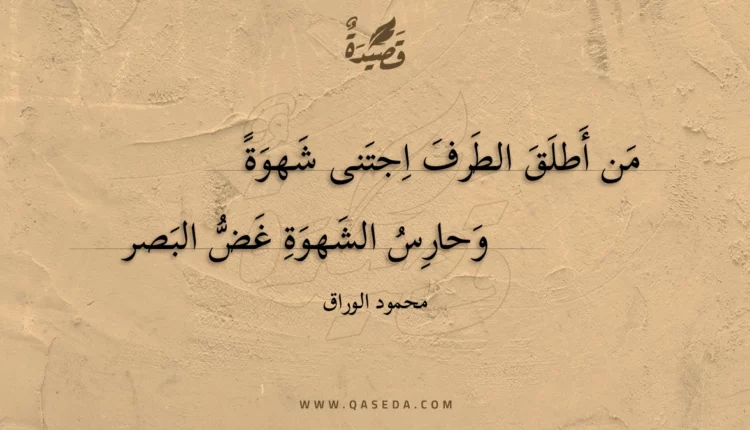 قَصِيْدَةٌ
مَن أَطلَقَ الطَرفَ اِجتَنى شَهوَةً
وَحارِسُ الشَهوَةِ غَضُّ البَصر
محمود الوراق
WWW.QASEDA.COM